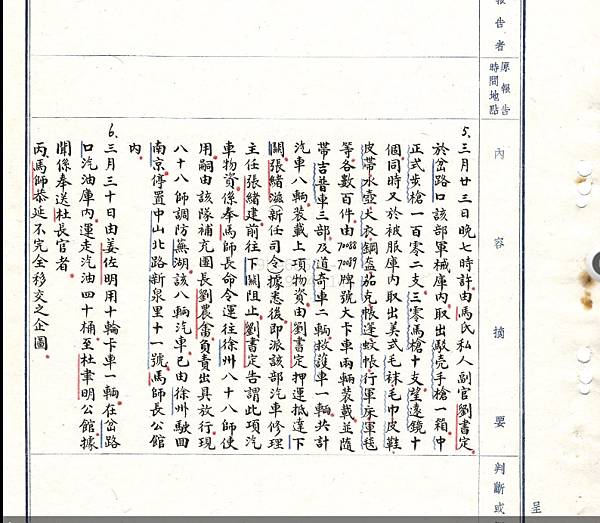 報告者
原報告
時間地點
內容摘要
判斷或
呈
5.三月廿三日晚七時許由馮氏私人副官劉書定
於岔路口該部軍械庫內取出殼売手槍一箱中
正式步槍一百零二支三零馬槍十支望遠鏡十
個同時又於被服庫內取出美式毛袜毛巾皮鞋
皮帶水壺大衣鋼盔茄克帳蓬蚊帳行軍床軍毯
等各數百件由70088 70089牌號大卡車兩輛裝載並隨
帶吉普車三部及道奇車二輛救護車一輛共計
汽車八輛裝載上項物資由劉書定押運抵達下
關張緒滋(新任司令)據悉後即派該部汽車修理
主任張緒建前往下關阻止劉書定告謂此項汽
車物資係奉馬師長命令運往徐州八十八師使
用嗣由該隊補充團長劉農畬負責出具放行現
八十八師調防蕪湖該八輛汽車已由徐州駛回
南京停置中山北路新泉里十一號馬師長公館
內
6.三月三十日由姜佐明用十輪卡車一輛在岔路
口汽油庫內運走汽油四十桶至杜聿明公館據
聞係奉送杜長官者
丙、馬師恭延不完全移交之企圖